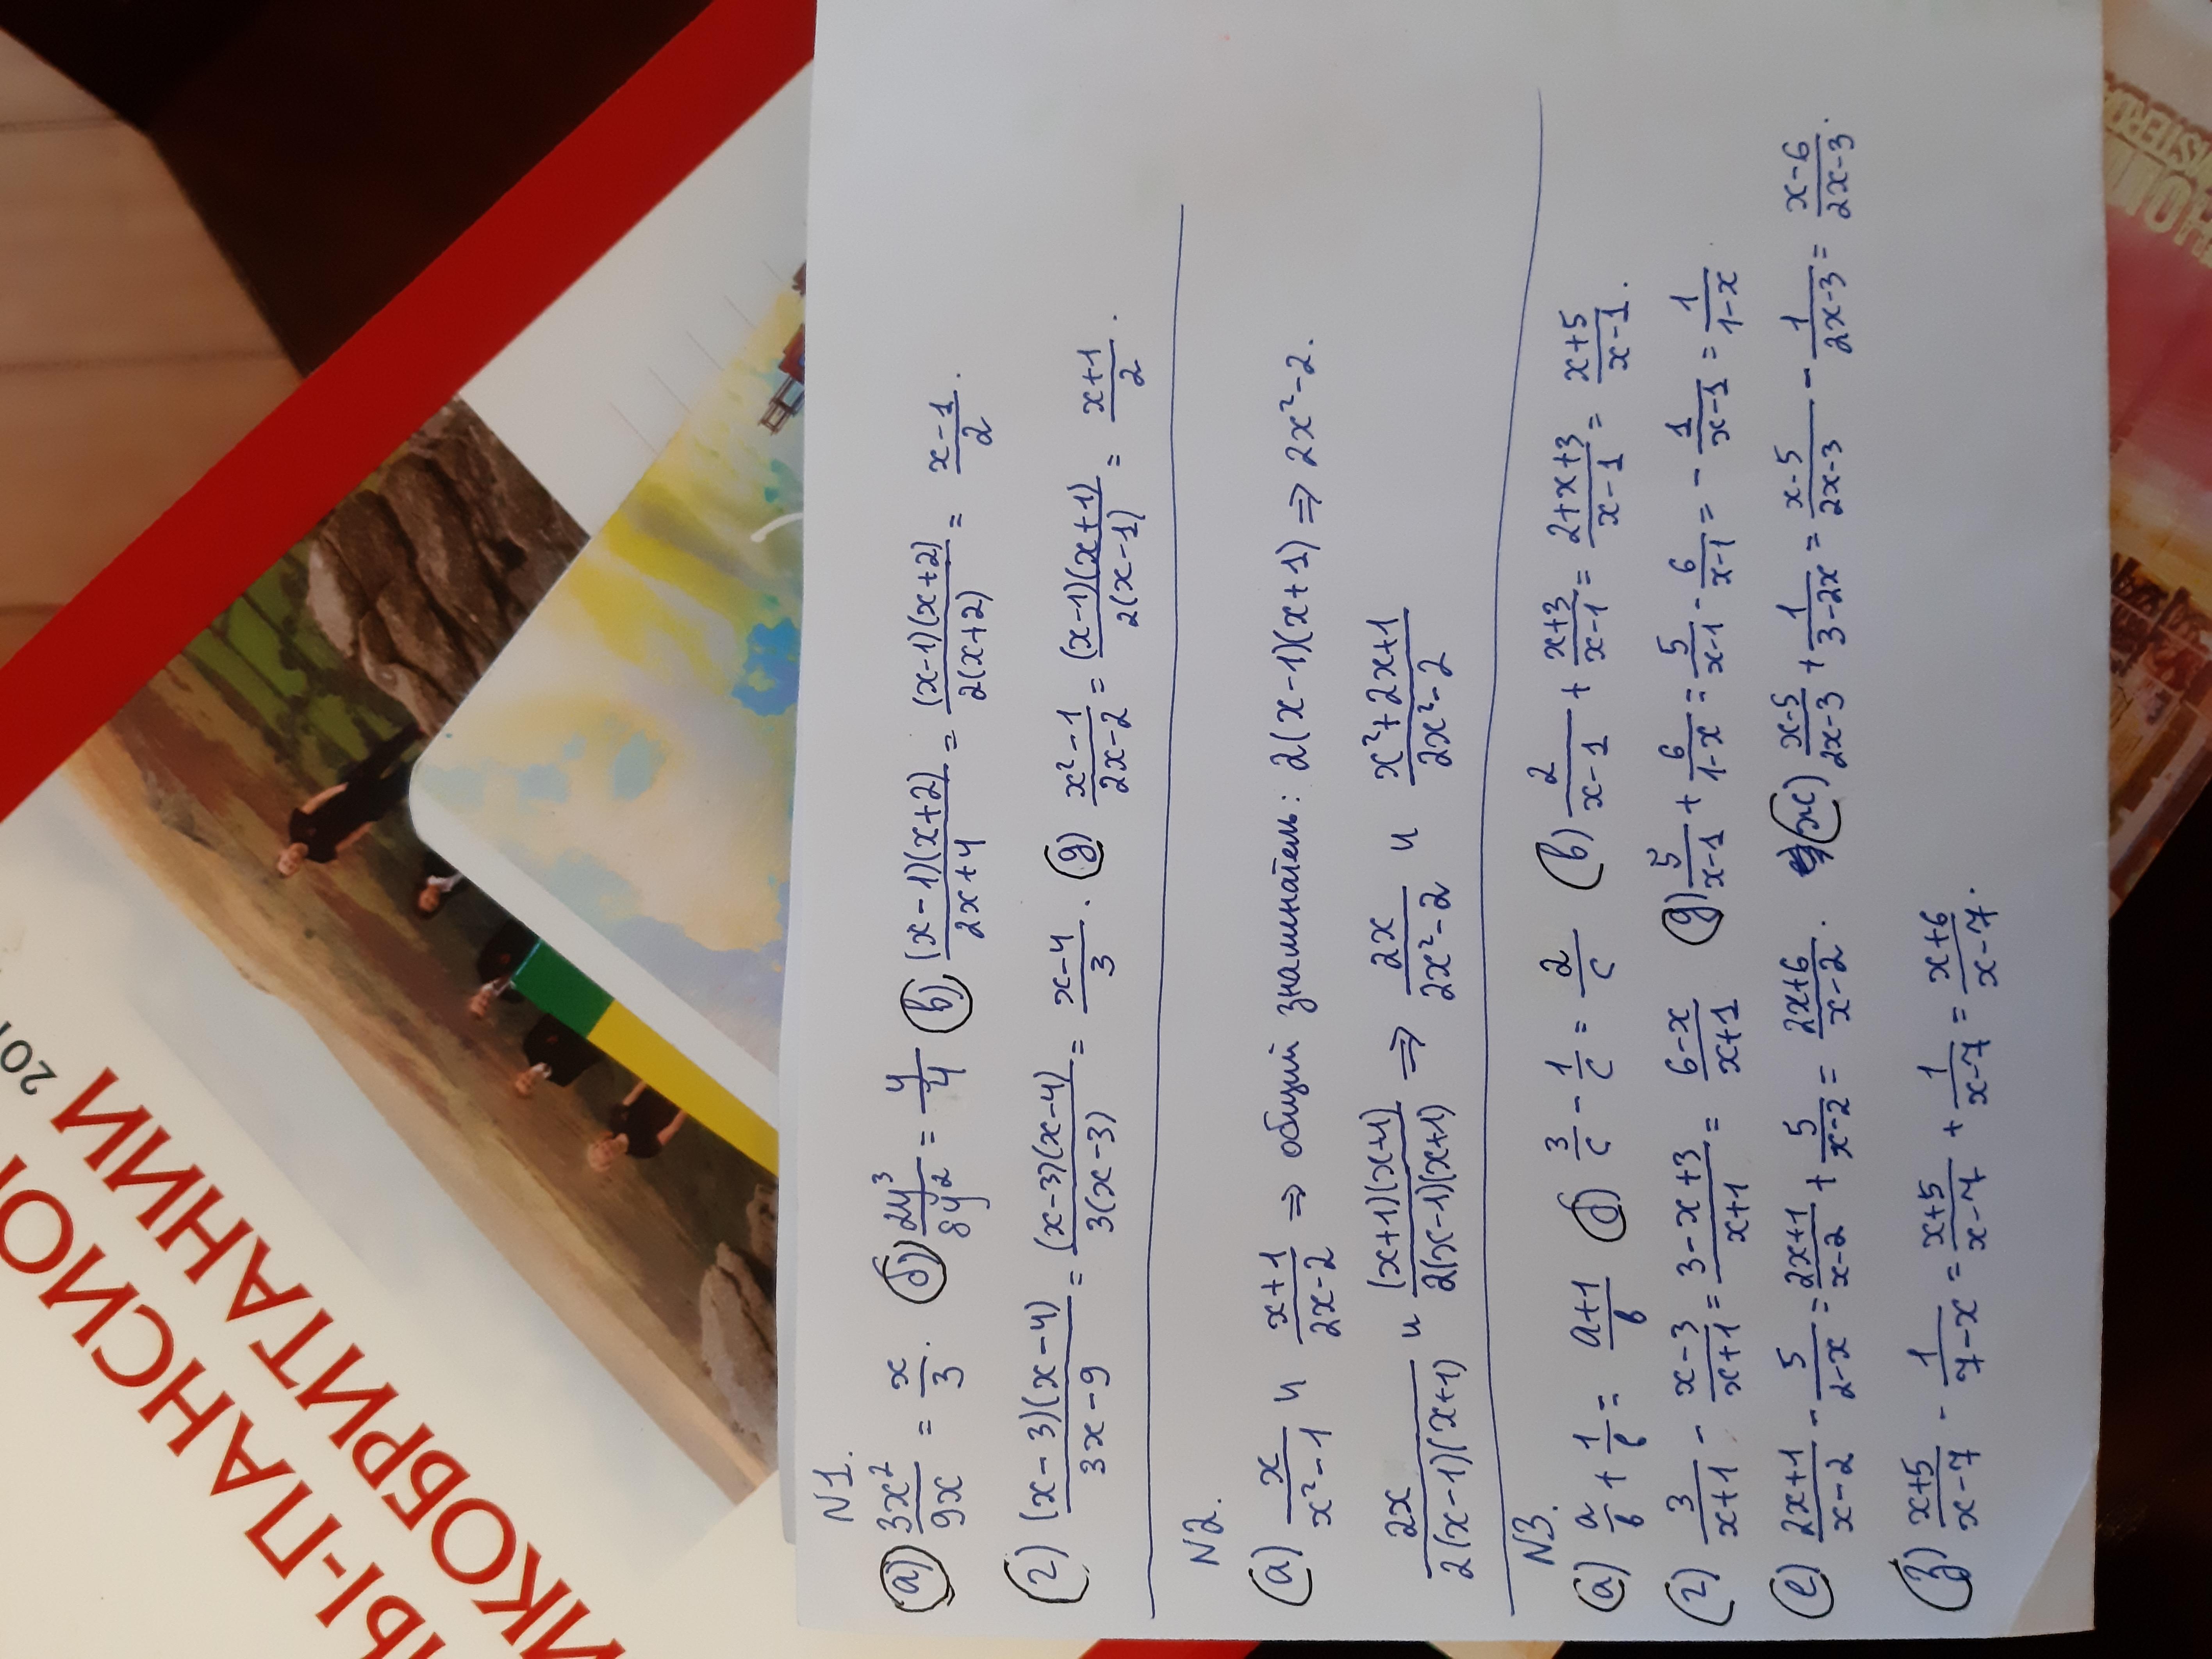 N1.
а) 3x²/9x = x/3. б) 2y³/8y² = y/4 в) (x-1)(x+2)/2x+4 = (x-1)(x+2)/2(x+2) = x-1/2.
г) (x-3)(x-4)/3x-9 = (x-3)(x-4)/3(x-3) = x-4/3. д) x²-1/2x-2 = (x-1)(x+1)/2(x-1) = x+1/2.
N2.
а) x/x²-1 и x+1/2x-2 ⇒ общий знаменатель: 2(x-1)(x+1) ⇒ 2x²-2.
2x/2(x-1)(x+1) и (x+1)(x+1)/2(x-1)(x+1) ⇒ 2x/2x²-2 и x²+2x+1/2x²-2
N3.
а) a/b + 1/b = a+1/b б) 3/c - 1/c = 2/c в) 2/x-1 + x+3/x-1 = 2+x+3/x-1 = x+5/x-1.
г) 3/x+1 - x-3/x+1 = 3-x+3/x+1 = 6-x/x+1 д) 5/x-1 + 6/1-x = 5/x-1 - 6/x-1 = - 1/x-1 = 1/1-x
е) 2x+1/x-2 - 5/2-x = 2x+1/x-2 + 5/x-2 = 2x+6/x-2. ж) x-5/2x-3 + 1/3-2x = x-5/2x-3 - 1/2x-3 = x-6/2x-3.
з) x+5/x-7 - 1/7-x = x+5/x-7 + 1/x-7 = x+6/x-7.